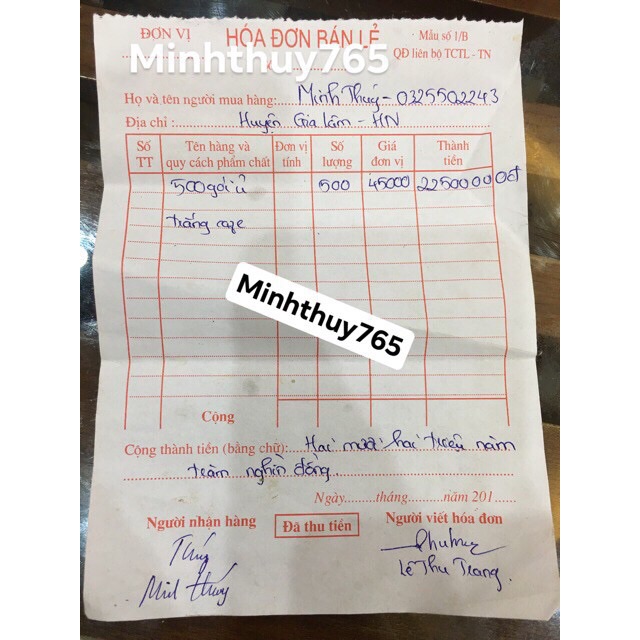 ĐƠN VỊ
HÓA ĐƠN BÁN LẺ
Mẫu số 1/B
QĐ liên bộ TCTL - TN
Minhthuy765
Họ và tên người mua hàng: Minh Thúy - 0325502243
Địa chỉ: Huyện Gia Lâm - HN
Số TT Tên hàng và quy cách phẩm chất Đơn vị tính Số lượng Giá đơn vị Thành tiền
500 gói ủ 500 45000 22500000đ
trắng
Minhthuy765
Cộng
Cộng thành tiền (bằng chữ): Hai mươi hai triệu năm
trăm nghìn đồng.
Ngày......tháng.........năm 201......
Người nhận hàng Đã thu tiền Người viết hóa đơn
Thúy
Minh Thúy Lê Thu Trang.